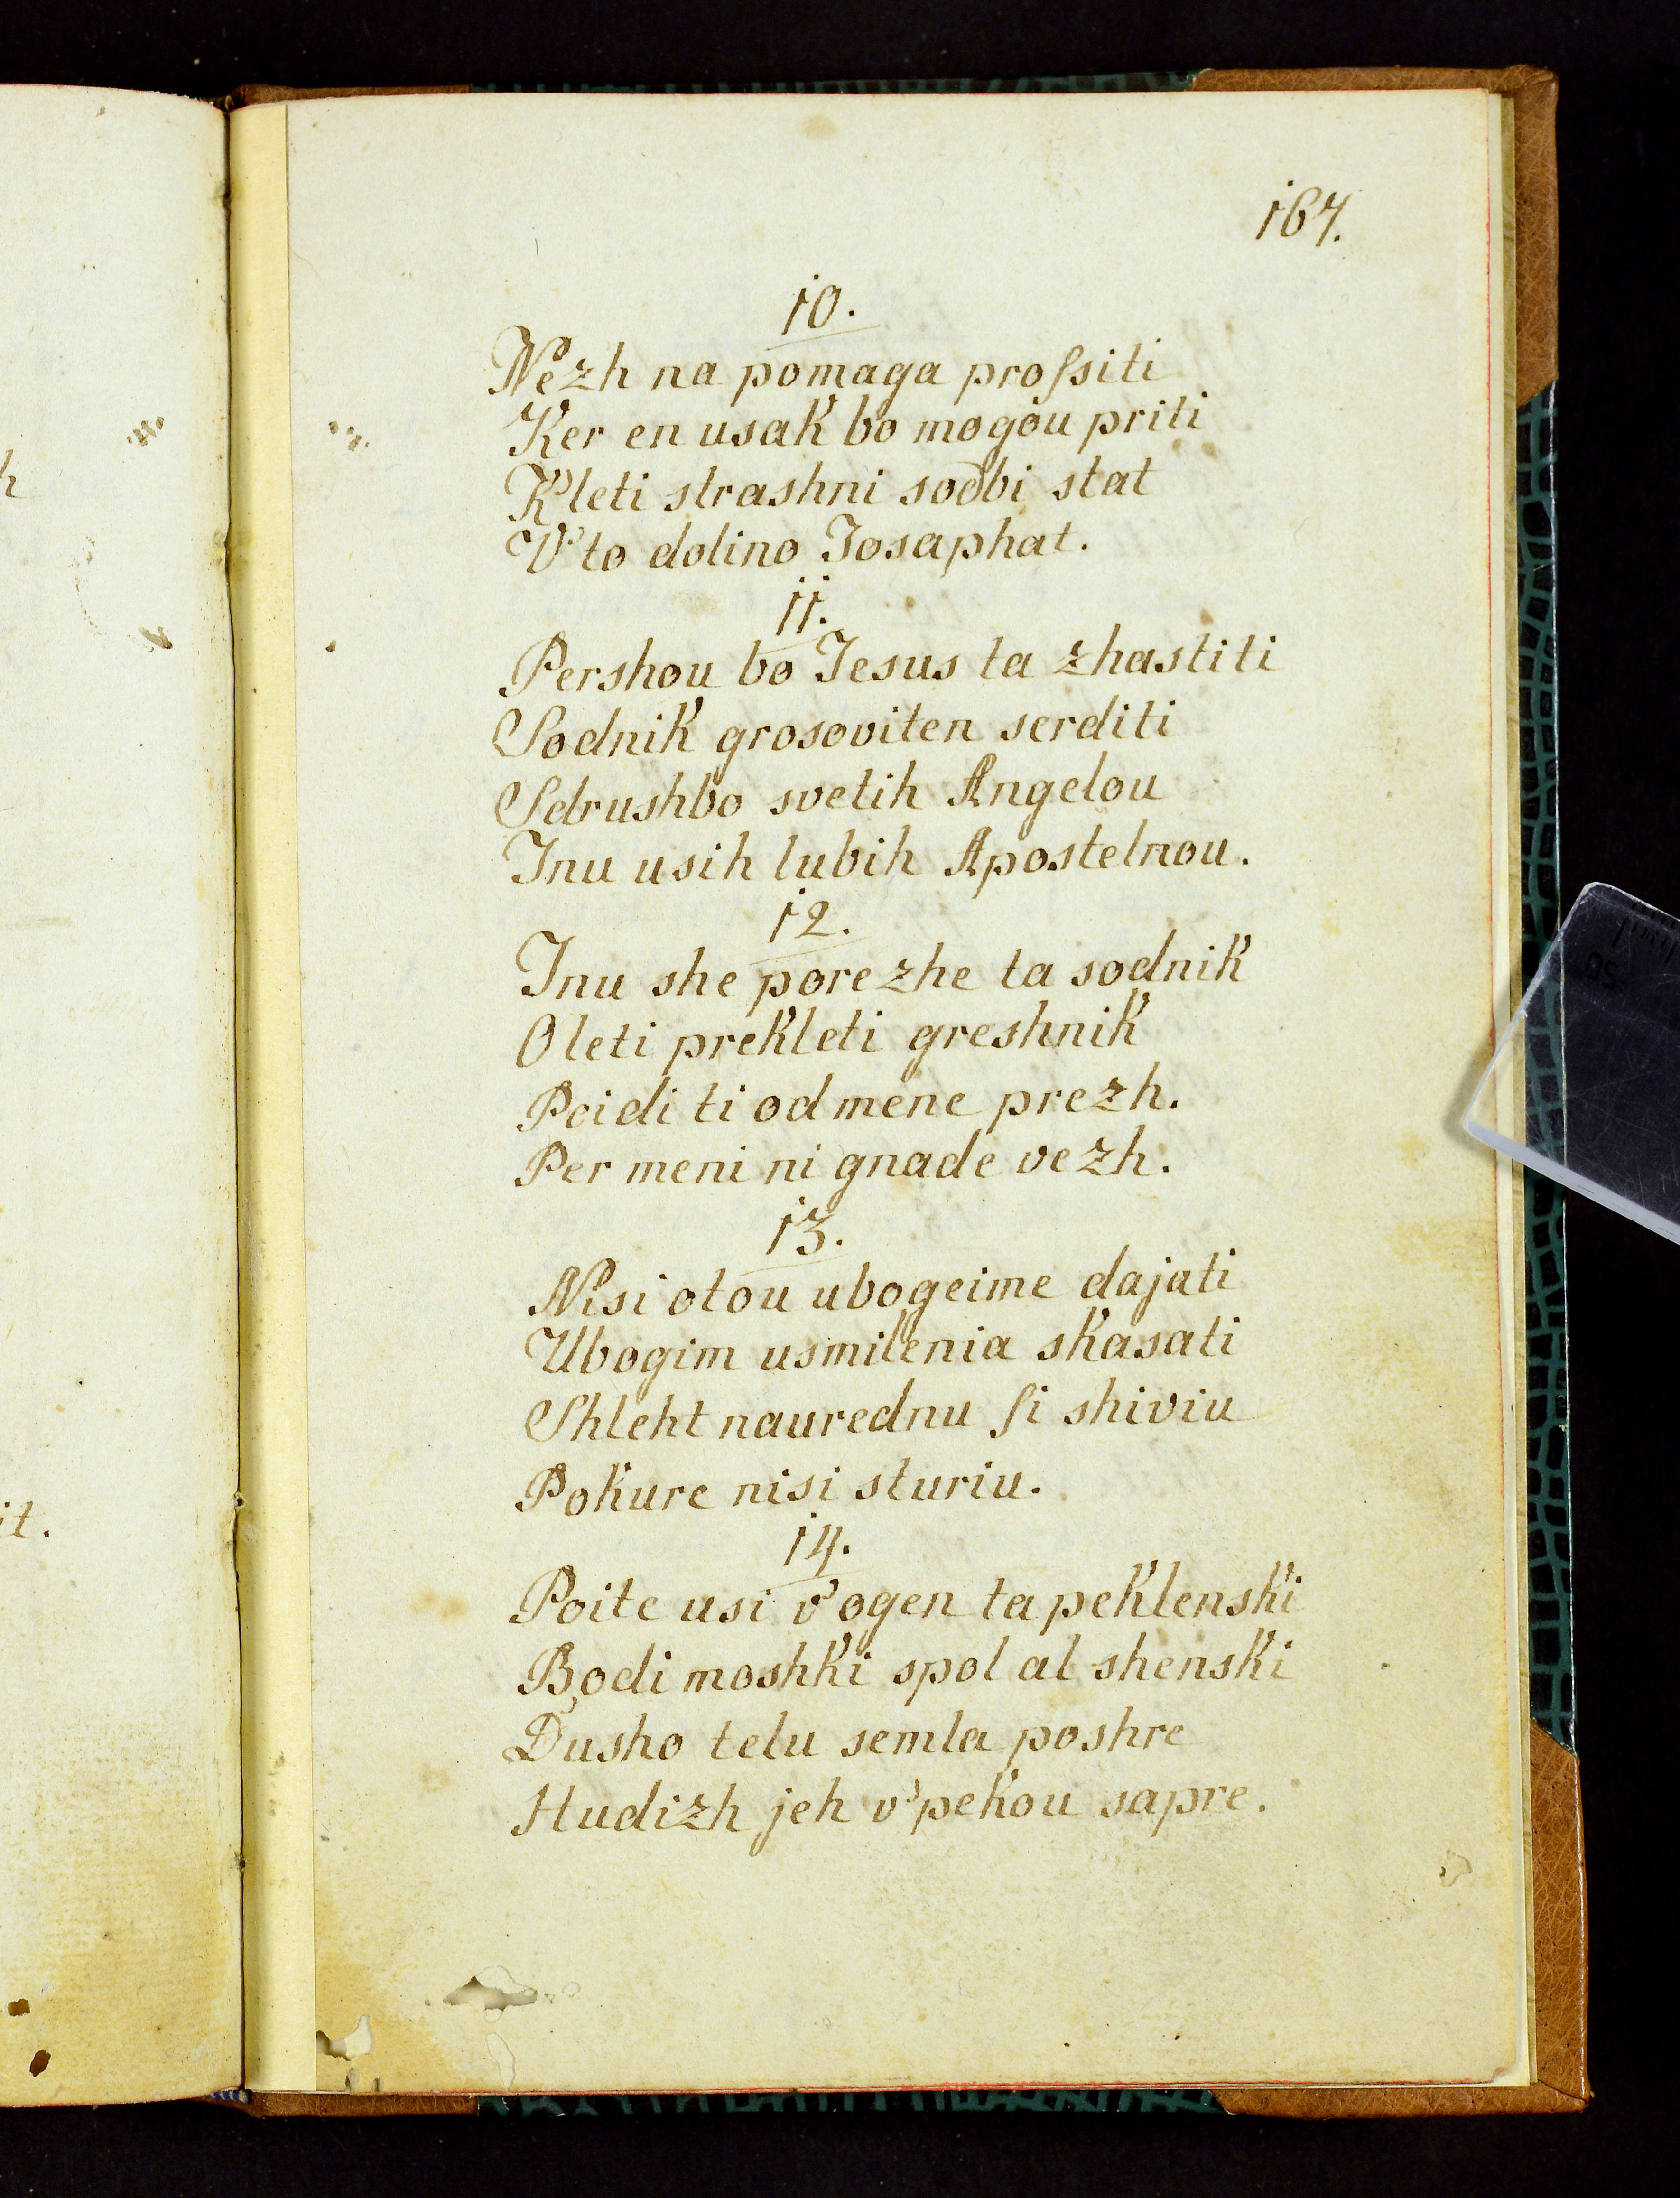 167.
10.
Nezh na pomaga profsiti
Ker en usak bo mogou priti
K'leti strashni sodbi stat
V'to dolino Josaphat.
11.
Pershou bo Jesus ta zhastiti
Sodnik grosoviten serditi
Sdrushbo svetih Angelou
Inu usih lubih Apostelnou.
12.
Inu she porezhe ta sodnik
O leti prekleti greshnik
Poidi ti od mene prezh.
Per meni ni gnade vezh.
13.
Nisi otou ubogeime dajati
Ubogim usmilenia skasati
Shleht naurednu ſi shiviu
Pokure nisi sturiu.
14.
Poite usi v'ogen ta peklenski
Bodi moshki spol al shenski
Dusho telu semla poshre
Hudizh jeh v'pekou sapre.
h
it.